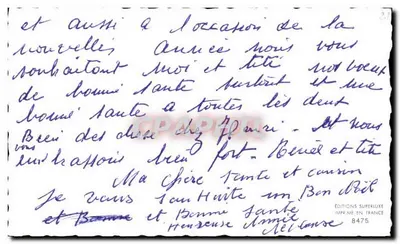 et aussi a l'occasion de la
nouvelles année nous vous
souhaitont moi et tété nos voeux
de bonne sante surtout et une
bonne sante a toutes les deux
Bien des chose chez Henri. et nous
vous
embrassons bien fort. René et tété
Ma chère tante et cousin
je vous souhaite un Bon Noël
et Bonne et Bonne Santé
Heureuse Année
EDITIONS SUPERLUXE
IMPRIMÉ EN FRANCE
8475